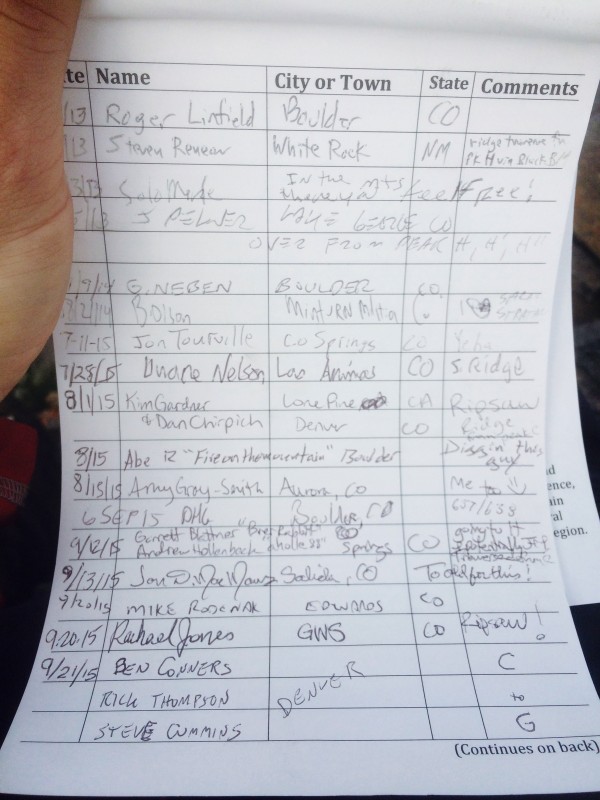 te Name City or Town State Comments
/13 Roger Linfield Boulder CO
13 Steven White Rock NM ridge traverse
PK H via Black
3/13 Solo In the mts Feel Free!
5/13 J LAKE GEORGE CO
OVER FROM PEAK H, H', H"
/9/14 G. NEBEN BOULDER CO.
8/21/14 B Olson MINTURN
7-11-15 Jon Tourville Co Springs CO
7/28/15 Duane Nelson Las Animas CO S. Ridge
8/1/15 Kim Gardner Lone Pine CA Ripsaw
& Dan Chirpich Denver CO Ridge
8/15 Abe iz "Fire on the mountain" Boulder Diggin this
guy
8/15/15 Amy Gray-Smith Aurora, CO Me too
6 SEP 15 DHG Boulder, CO 637/638
9/12/15 Garrett Andrew Hollenback Springs CO going to H
potentially
9/13/15 Salida, CO Too old for this!
9/20/15 MIKE RODENAK EDWARDS CO
9.20.15 Rachael Jones GWS CO Ripsaw!
9/21/15 BEN CONNERS C
RICK THOMPSON DENVER to
STEVE CUMMINS G
(Continues on back)
ence,
ain
al
egion.